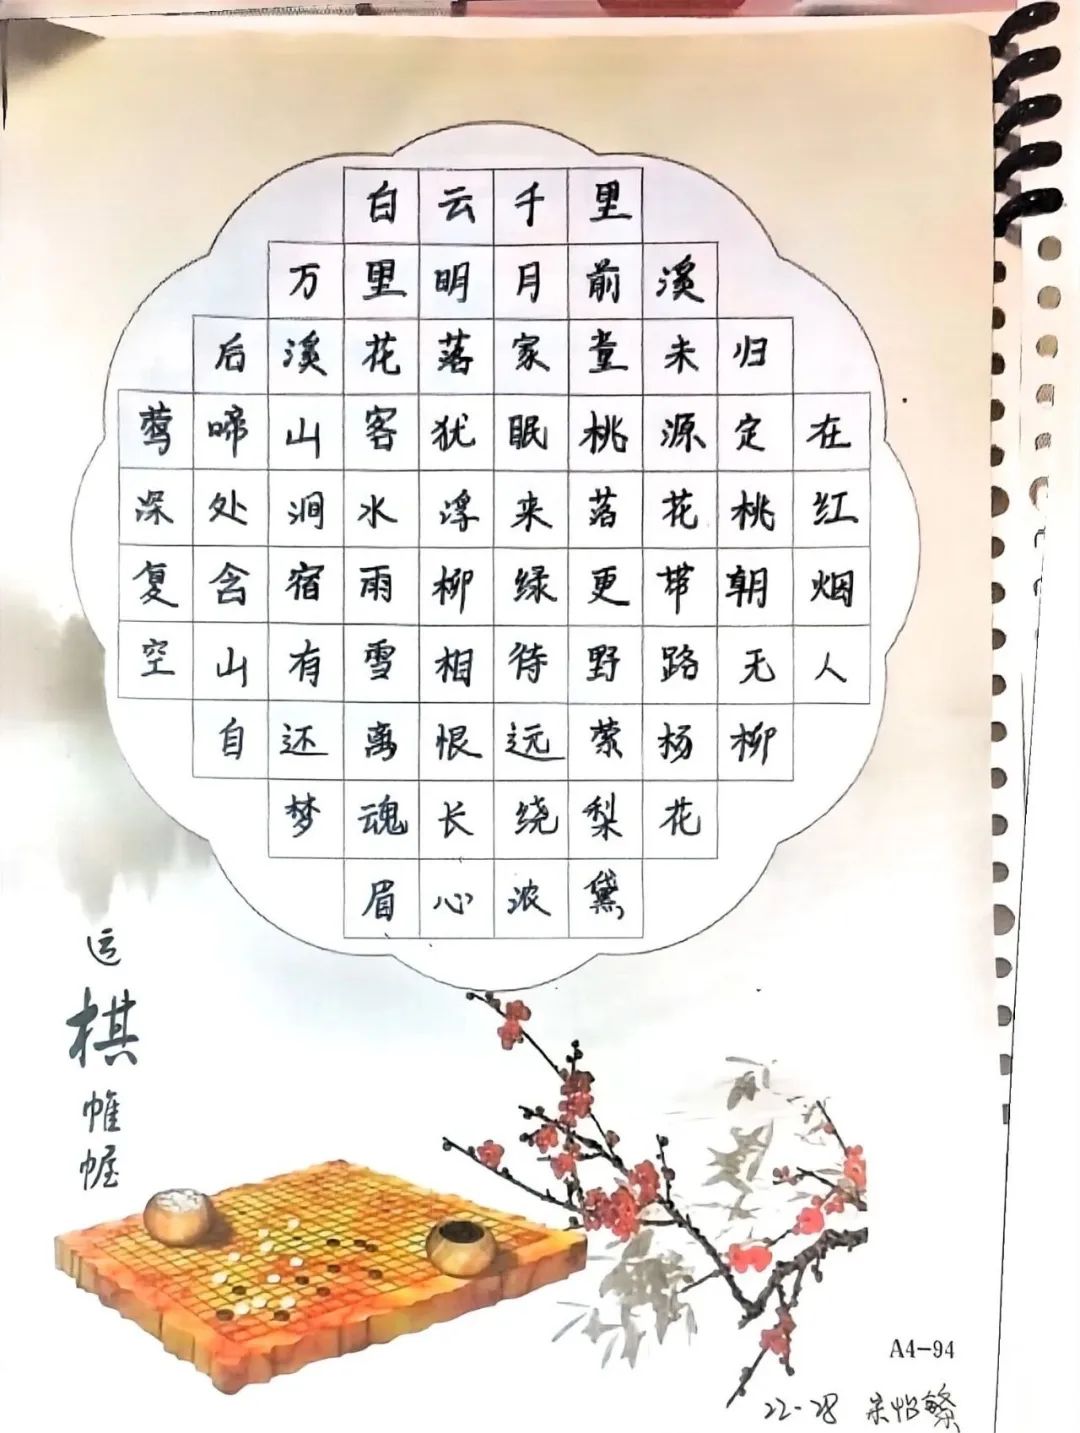 白云千里
万里明月前溪
后溪花落家童未归
莺啼山客犹眠桃源定在
深处涧水浮来落花桃红
复含宿雨柳绿更带朝烟
空山有雪相待野路无人
自还离恨远萦杨柳
梦魂长绕梨花
眉心浓黛
运
棋
帷
幄
A4-94
22-28